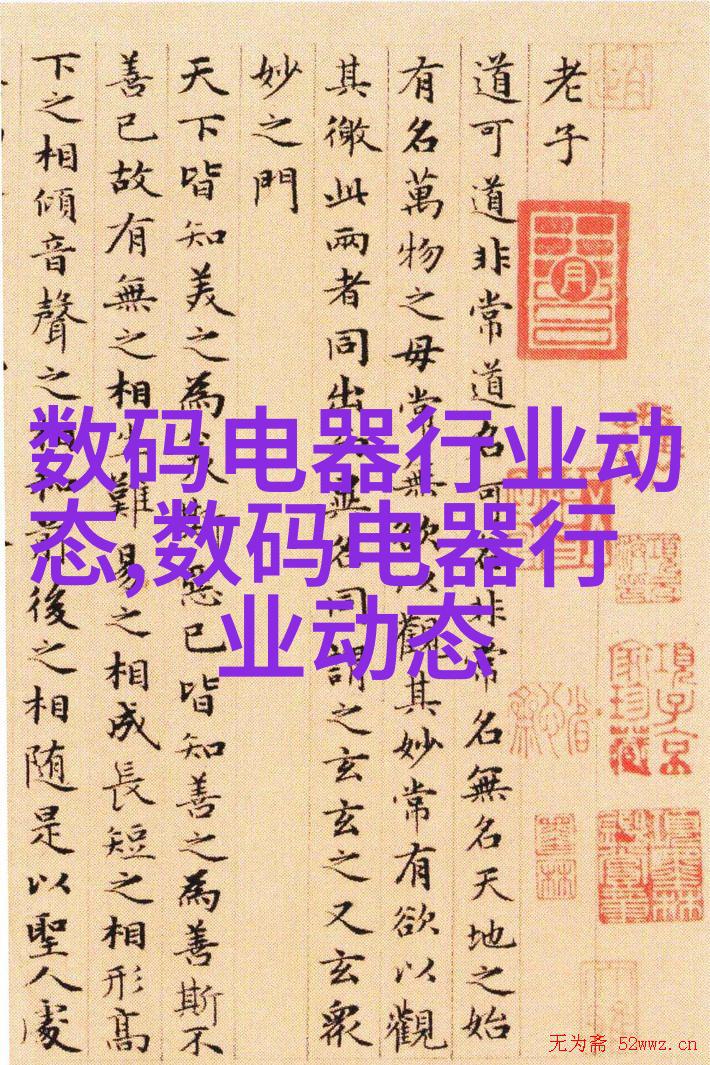 老子
道可道非常道名可名非常名無名天地之始
有名萬物之母常無欲以觀其妙常有欲以觀
其徼此兩者同出而異名同謂之玄玄之又玄衆
妙之門
天下皆知美之為美斯惡已皆知善之為善斯不
善已故有無之相生難易之相成長短之相形高
下之相傾音聲之相和前後之相随是以聖人處
数码电器行业动
态,数码电器行
业动态
項子京
家珍藏
无为斋 52wwz.cn